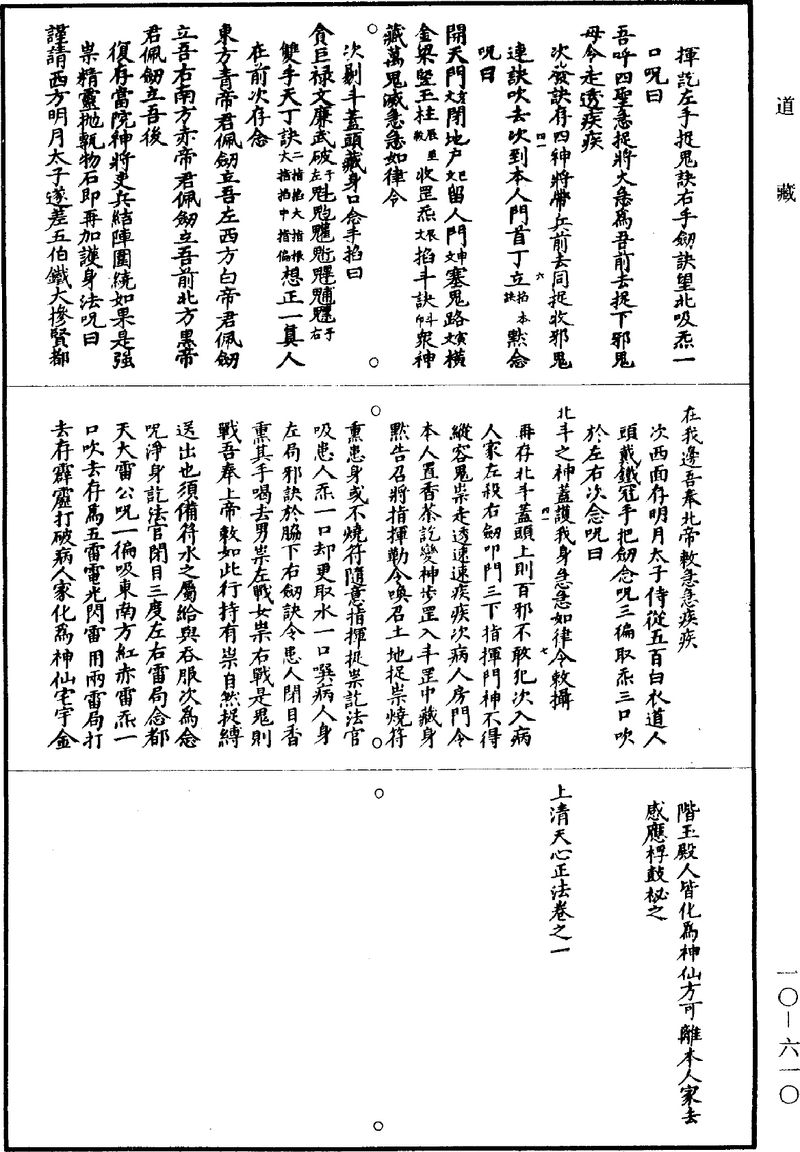 道藏
揮訖左手捉鬼訣右手劍訣望北吸炁一
口呪曰
吾呼四聖急捉將大急為吾前去捉下邪鬼
毋令走透疾疾
次發訣存四神將帶兵前去同捉收邪鬼
連訣吹去次到本人門首丁立掐本訣默念
呪曰
開天門文閉地户留人門塞鬼路橫
金梁竪玉柱收罡炁掐斗訣眾神
藏萬鬼滅急急如律令
次剔斗蓋頭藏身口念手掐曰
貪巨禄文廉武破
雙手天丁訣二指掐大指根大指掐中指偏想正一真人
在前次存念
東方青帝君佩劒立吾左西方白帝君佩劒
立吾右南方赤帝君佩劒立吾前北方黑帝
君佩劒立吾後
復存當院神將吏兵結陣圍繞如果是強
祟精靈拋甎物石即再加護身法呪曰
謹請西方明月太子遂差五伯鐵大摻賢都
在我邊吾奉北帝敕急急疾疾
次西面存明月太子侍從五百白衣道人
頭戴鐵冠手把劒念呪三徧取炁三口吹
於左右次念呪曰
北斗之神蓋護我身急急如律令敕攝
再存北斗蓋頭上則百邪不敢犯次入病
人家左殺右劒叩門三下指揮門神不得
縱容鬼祟走透速速疾疾次病人房門令
本人置香茶訖變神步罡入斗罡中藏身
默告召將指揮勒令喚召土地捉祟燒符
熏患身或不燒符隨意指揮捉祟訖法官
吸患人炁一口却更取水一口噀病人身
左局邪訣於脇下右劒訣令患人閉目香
熏其手喝去男祟左戰女祟右戰是鬼則
戰吾奉上帝敕如此行持有祟自然捉縛
送出也須備符水之屬給與吞服次為念
呪淨身訖法官閉目三度左右雷局念都
天大雷公呪一徧吸東南方紅赤雷炁一
口吹去存為五雷電光閃雷用兩雷局打
去存霹靂打破病人家化為神仙宅宇金
階玉殿人皆化為神仙方可離本人家去
感應桴鼓祕之
上清天心正法卷之一
一〇－六一〇